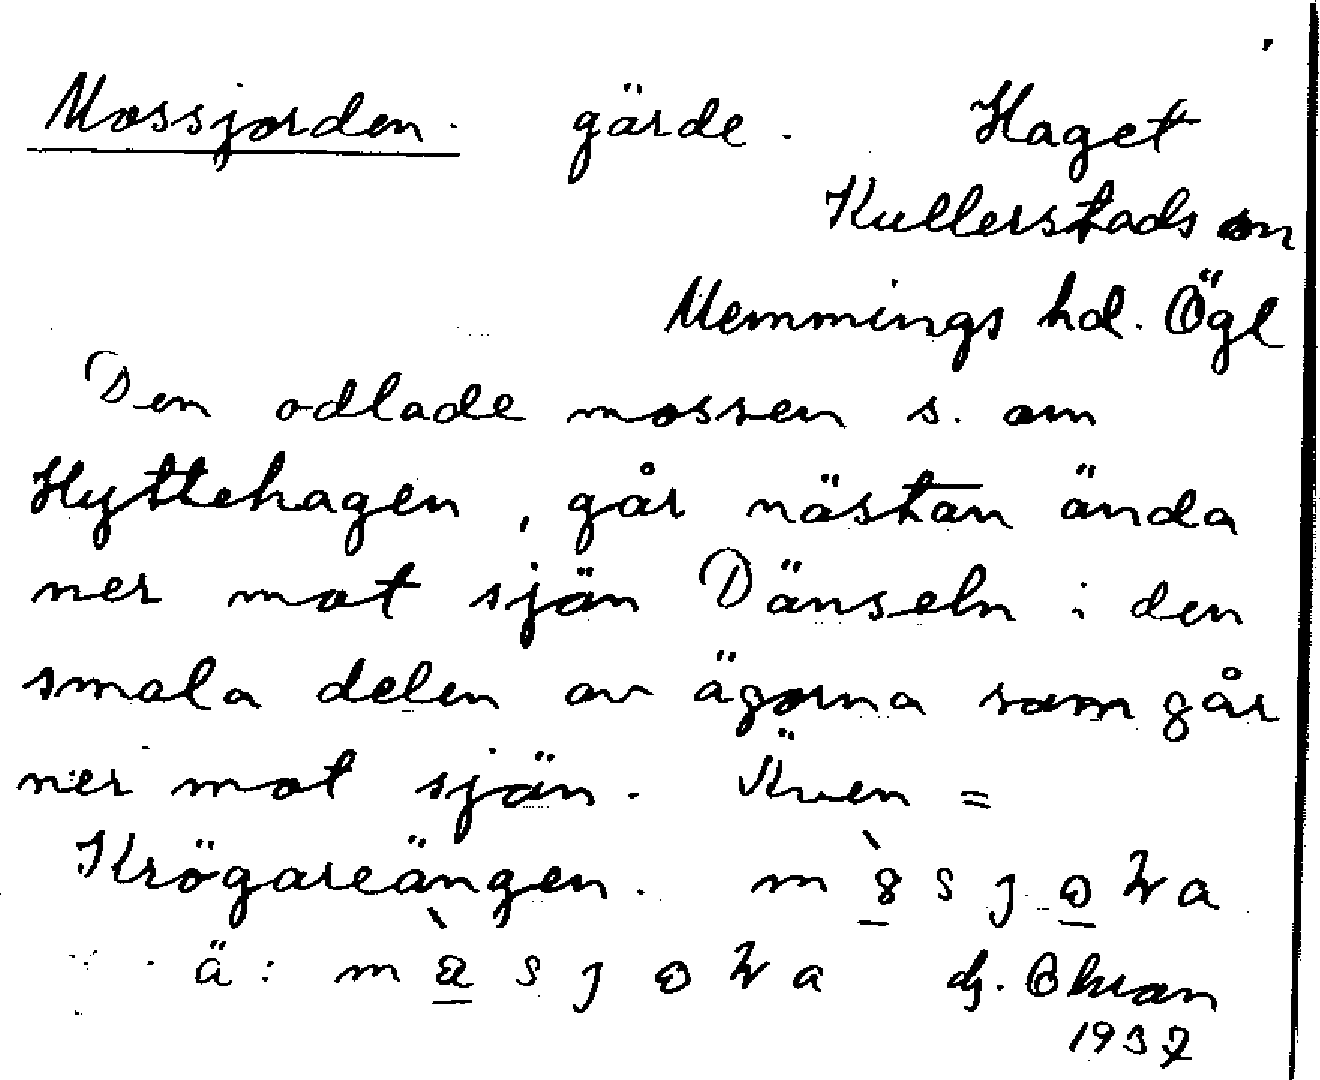 Mossjorden. gärde. Haget
Kullerstads sn
Memmings hd. Ögl
Den odlade mossen s. om
Hyttehagen, går nästan ända
ner mot sjön Dänseln i den
smala delen av ägorna som går
ner mot sjön. Även =
Krögareängen.
ä:
1937